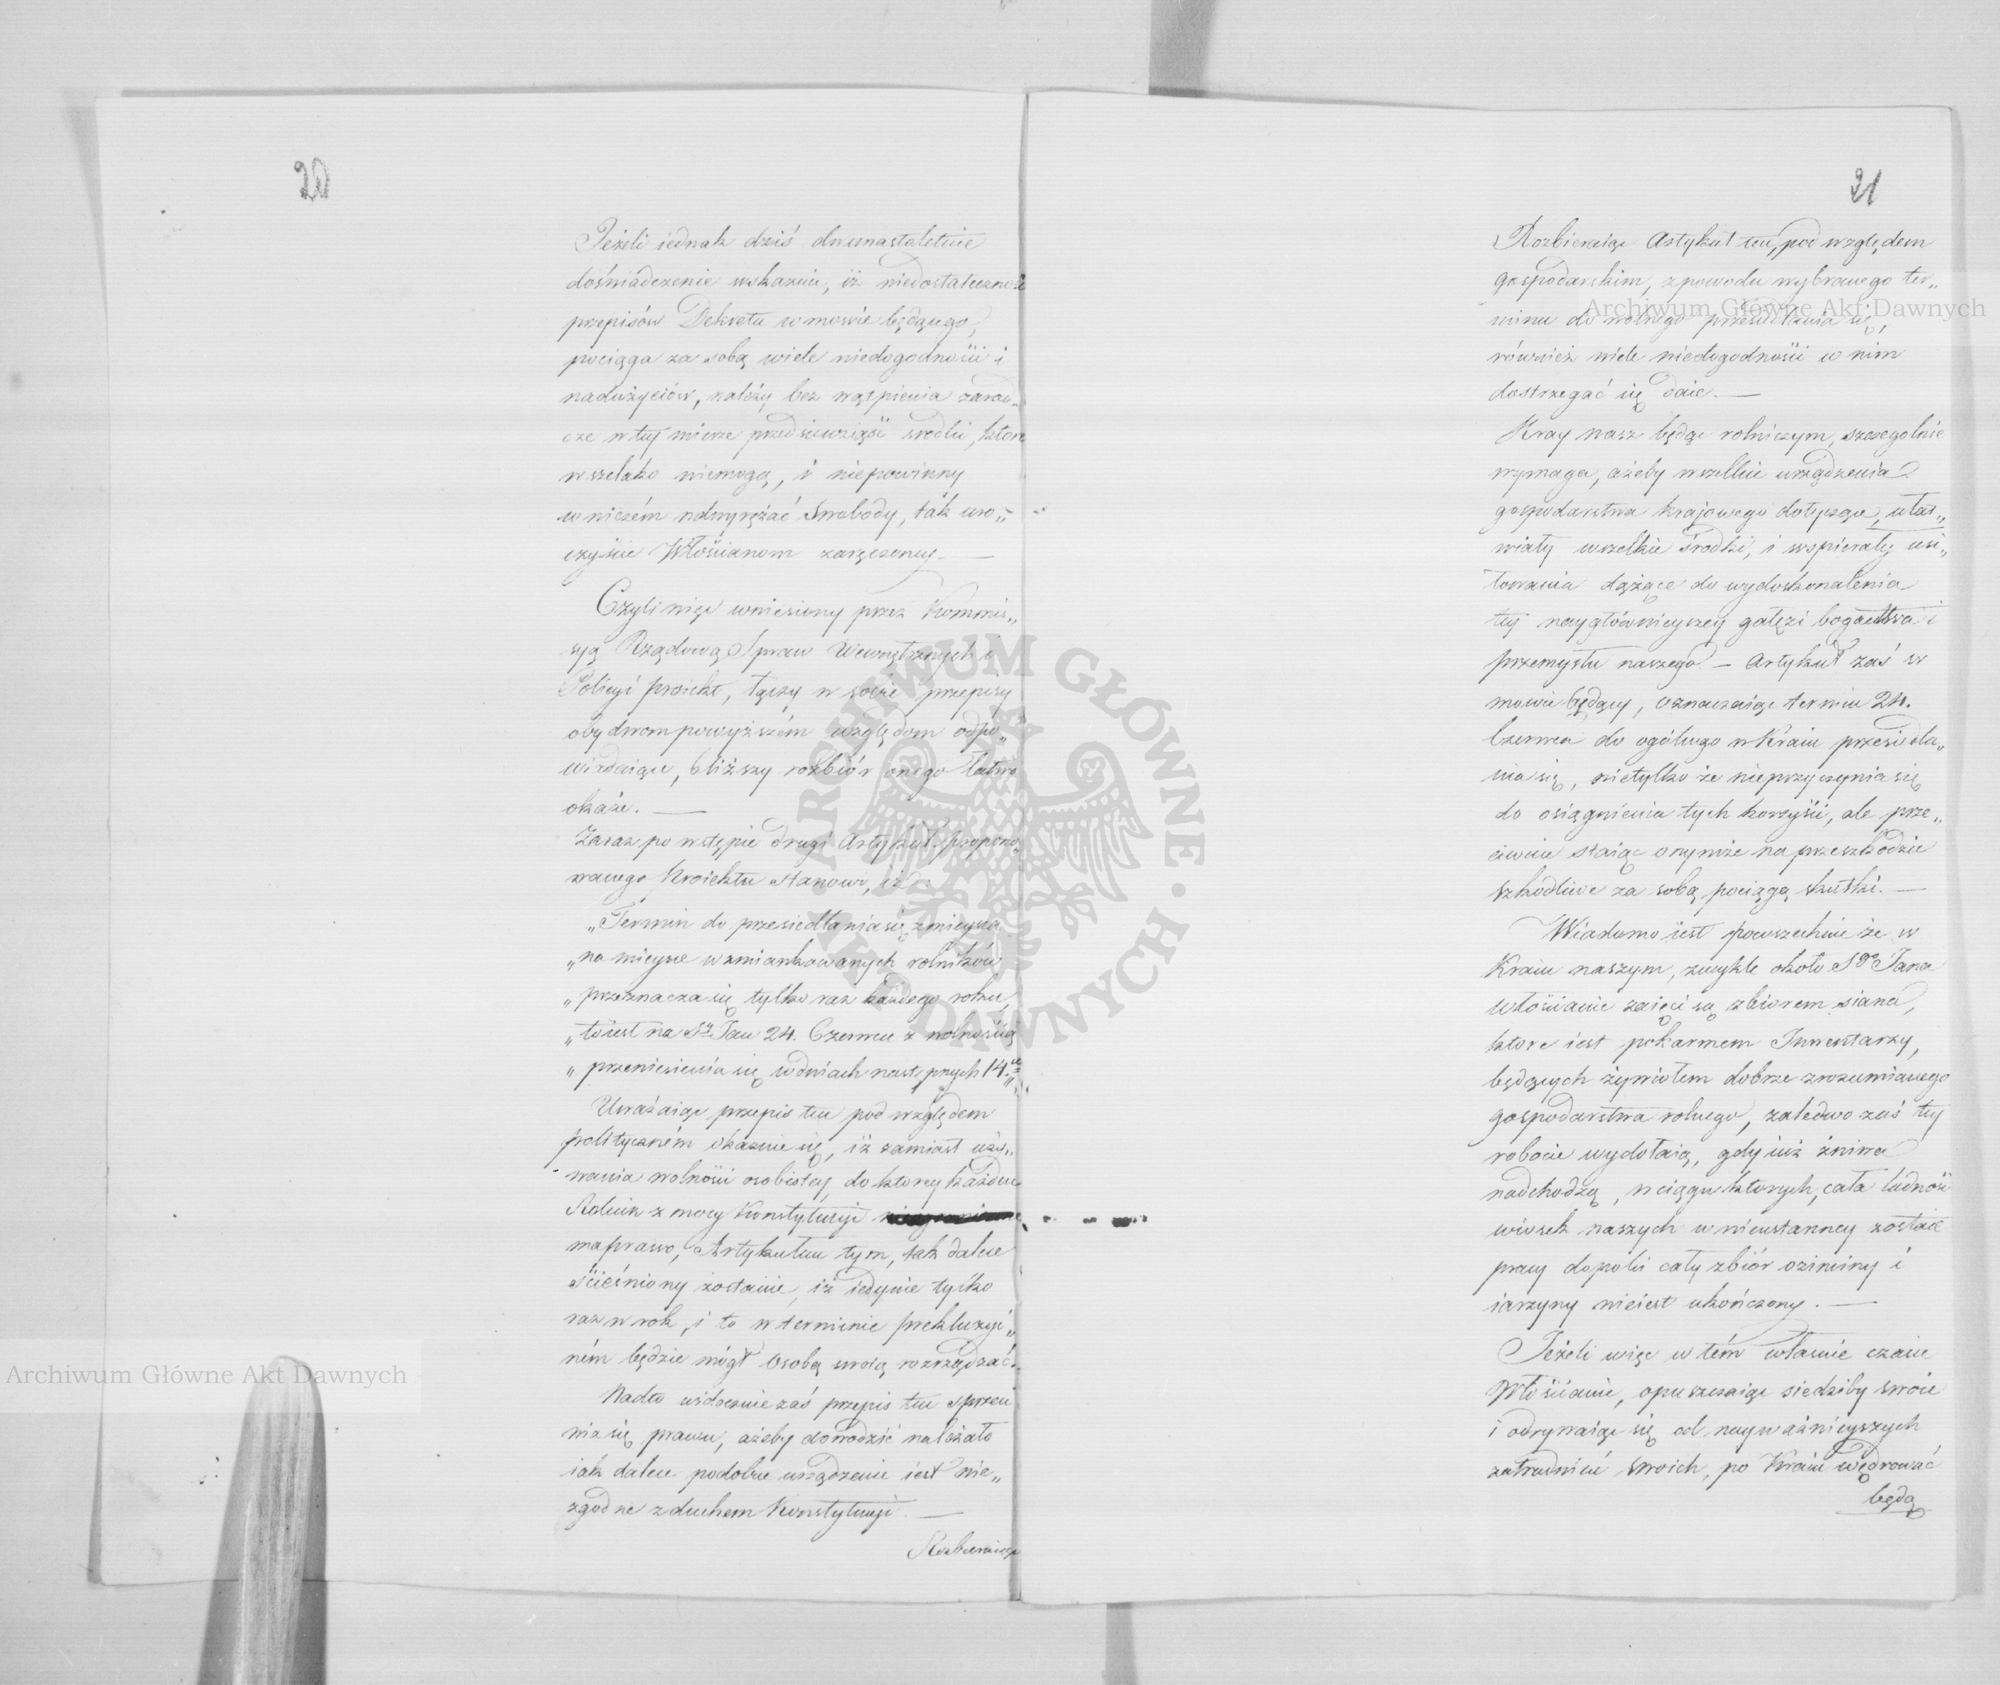 20
Jeżeli iednak dziś dwunastoletnie
doświadczenie wskazuie, iż niedostateczność
przepisów Dekretu w mowie będącego,
pociąga za sobą wiele niedogodności i
nadużyciów, należy bez wątpienia zarad„
cze w tey mierze przedsiewziąść srodki, które
wszelako niemogą, i niepowinny
w niczém nadwyrężać Swobody, tak uro„
czyście Włościanom zaręczoney. —
Czyli więc wniesiony przez Kommis„
syą Rządową Spraw Wewnętrznych i
Policyi proiekt, łączy w sobie przepisy
obydwom powyższém względom odpo„
wiadaiące, bliższy rozbiór onego łatwo
okaże. —
Zaraz po wstępie drugi Artykuł propono„
wanego Proiektu stanowi, iż:
„Termin do przesiedlania się z mieysca
„na mieysce wzmiankowanych rolników
„przeznacza się tylko raz każdego roku,
„to iest na St Jan 24. Czerwca z wolnością
„przeniesienia się w dniach następnych 14.„
Uważaiąc przepis ten pod względem
polityczném okazuie się, iż zamiast uży„
wania wolności osobistey, do ktorey każden
Rolnik z mocy Konstytucyi
ma prawo, Artykułem tym, tak dalece
ścieśniony zostanie, iż iedynie tylko
raz w rok, i to w terminie prekluzyi„
ném będzie mógł Osobą swoią rozrządzać.
Nadto widocznie zaś przepis ten sprzeci
wia się prawu, ażeby dowodzić należało
iak dalece podobne urządzenie iest nie„
zgodne z duchem Konstytucyi. —
Rozbieraiąc
21
Rozbieraiąc Artykuł ten, pod względem
gospodarskim, z powodu wybranego ter„
minu do wolnego przesiedlania się,
również wiele niedogodności w nim
dostrzegać się daie. —
Kray nasz będąc rolniczym, szczególnie
wymaga, ażeby wszelkie urządzenia
gospodarstwa krajowego dotyczące, ułat„
wiały wszelkie srodki, i wspierały usi„
łowania dążące do wydoskonalenia
tey naygłównieyszey gałęzi bogactwa i
przemysłu naszego — Artykuł zaś w
mowie będący, oznaczaiąc termin 24.
Czerwca do ogólnego w Kraiu przesiedla„
nia się, nietylko że nieprzyczynia się
do osiągnienia tych korzyści, ale prze„
ciwnie staiąc onymże na przeszkodzie
szkodliwe za sobą pociągą skutki. —
Wiadomo iest powszechnie że w
Kraiu naszym, zwykle około Sgo Jana
włościanie zaięci są zbiorem siana,
ktore iest pokarmem Inwentarzy,
będących żywiołem dobrze zrozumianego
gospodarstwa rolnego, zaledwo zaś tey
robocie wydołaią, gdy iuż żniwa
nadchodzą, w ciągu ktorych, cała ludność
wiosek naszych w nieustanney zostaie
pracy dopóki cały zbiór oziminy i
iarzyny nieiest ukończony. —
Jeżeli więc w tém właśnie czasie
Włościanie, opuszczaiąc siedziby swoie
i odrywaiąc się od nayważnieyszych
zatrudnień swoich, po Kraiu wędrować
będą
Archiwum Główne Akt Dawnych
Archiwum Główne Akt Dawnych
ARCHIWUM GŁÓWNE · AKT DAWNYCH ·